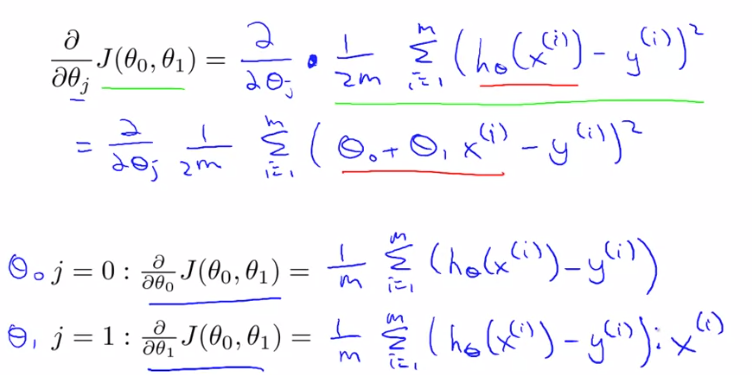 ∂/∂θj J(θ0, θ1) = ∂/∂θj · 1/2m ∑_{i=1}^{m} (hθ(x^(i)) − y^(i))²
= ∂/∂θj 1/2m ∑_{i=1}^{m} (θ0 + θ1 x^(i) − y^(i))²
θ0 j = 0 : ∂/∂θ0 J(θ0, θ1) = 1/m ∑_{i=1}^{m} (hθ(x^(i)) − y^(i))
θ1 j = 1 : ∂/∂θ1 J(θ0, θ1) = 1/m ∑_{i=1}^{m} (hθ(x^(i)) − y^(i)) · x^(i)